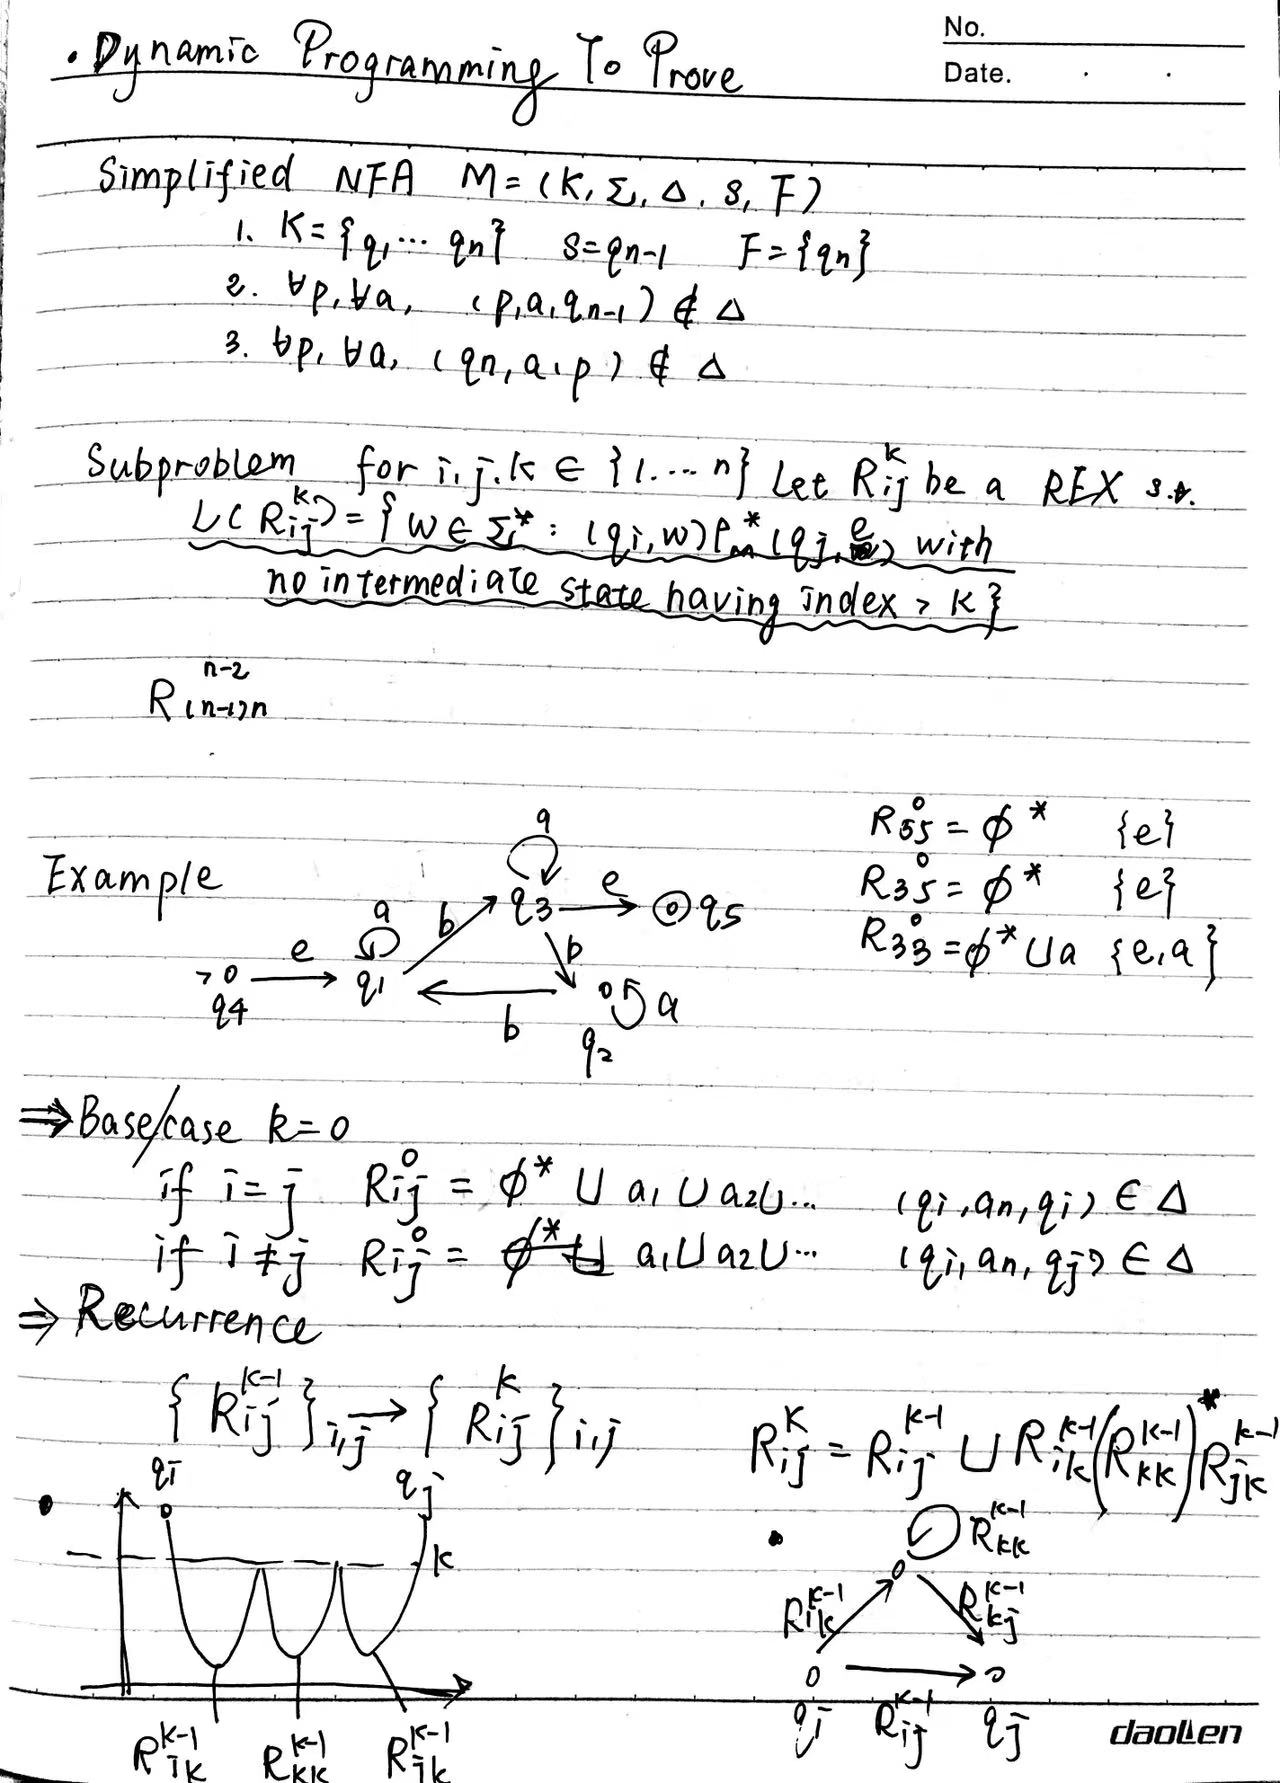 No.
· Dynamic Programming To Prove
Date. · ·
Simplified NFA M = (K, Σ, Δ, s, F)
1. K = {q₁ ... qn} S = qn-1 F = {qn}
2. ∀p, ∀a, (p, a, qn-1) ∉ Δ
3. ∀p, ∀a, (qn, a, p) ∉ Δ
Subproblem for i, j, k ∈ {1, ... n} Let Rij^k be a REX s.t.
L(Rij^k) = {w ∈ Σ* : (qi, w) ⊢m* (qj, e) with
no intermediate state having index > k}
R(n-1)n^n-2
R55^0 = ϕ* {e}
R35^0 = ϕ* {e}
R33^0 = ϕ* ∪ a {e, a}
Example
a
q3
e
q5
a
b
b
>
e
q4
q1
b
a
q2
⇒ Base case k = 0
if i = j Rij^0 = ϕ* ∪ a₁ ∪ a₂ ∪ ... (qi, an, qi) ∈ Δ
if i ≠ j Rij^0 = a₁ ∪ a₂ ∪ ... (qi, an, qj) ∈ Δ
⇒ Recurrence
{Rij^k-1}i,j → {Rij^k}i,j
Rij^k = Rij^k-1 ∪ Rik^k-1 (Rkk^k-1)* Rjk^k-1
qi
qj
k
Rik^k-1
Rkk^k-1
Rjk^k-1
Rkk^k-1
Rik^k-1
Rkj^k-1
qi
Rij^k-1
qj
daolen